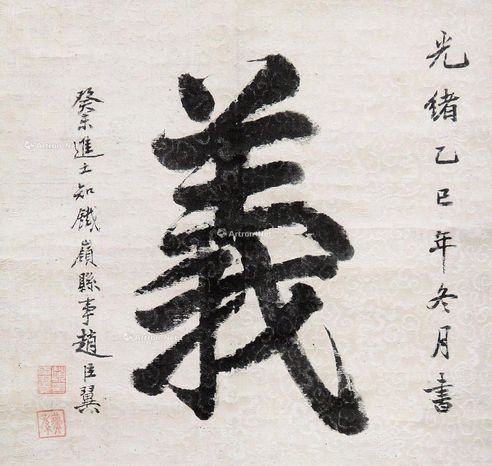 光緒乙巳年冬月書
義
癸未進士知鐵嶺縣事趙臣翼